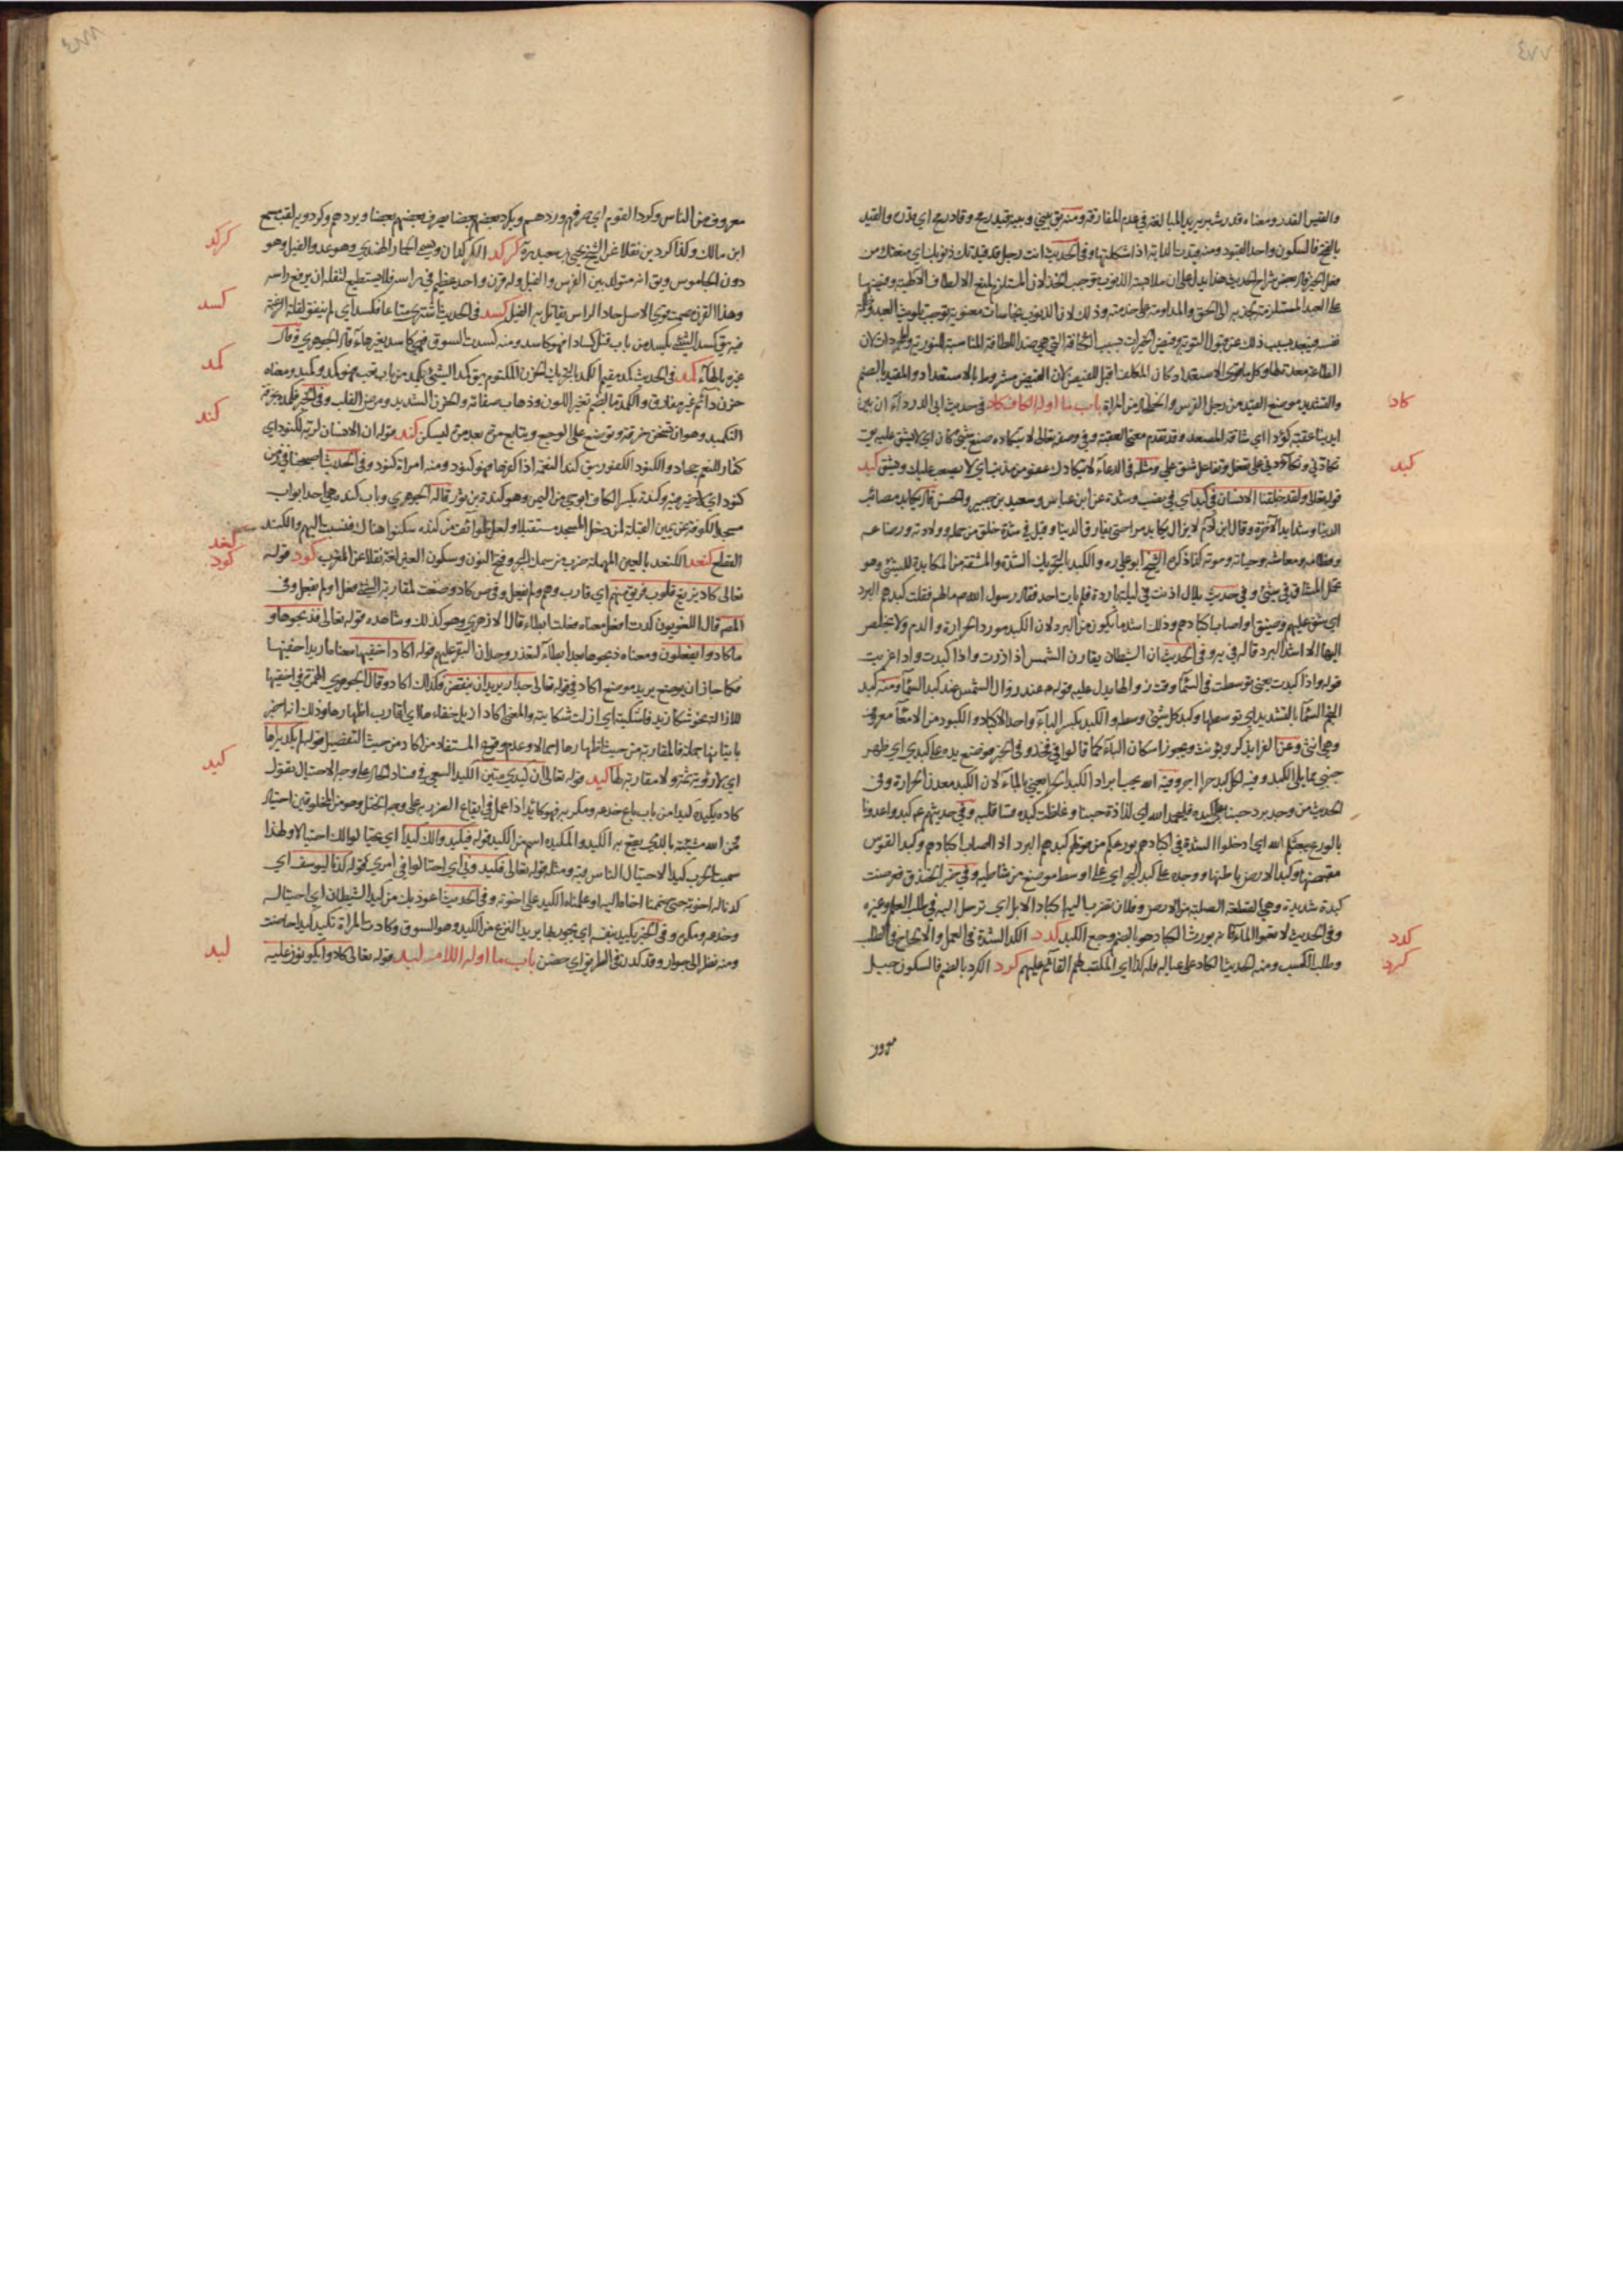 ٤٧٧
والقيس القدر ومعناه قدر شبر يريد المبالغة في عدم المفارقة ومنه يق بيني وبينه قيد رمح وقاد رمح اي قدر والقيد
بالفتح فالسكون واحد القيود ومنه قيدت الدابة اذا شكلتها وفي الحديث انت رجل قد قيدتك ذنوبك اي منعتك من
فعل الخير قال بعض شراح الحديث هذا يدل على ان ملاحبة الذنوب توجب الخذلان المستلزم لمنع الالطاف الالهية وفيضها
على العبد المستلزمة لجذبه الى الحق والمداومة على خدمته وذلك لان الذنوب نجاسات معنوية توجب تلويث العبد
نفسه فيبعد بسبب ذلك عن قبول التوبة وفيض الخيرات بسبب الكثافة التي هي ضد اللطافة المناسبة للنورية
الطاعة معدة لها وكل ما قوى الاستعداد كان المكلف اقبل للفيض لان الفيض مشروط بالاستعداد والمقيد بالضم
والتشديد موضع القيد من رجل الفرس والخلخال من المراة باب ما اوله الكاف كاد في حديث ابي الدرداء ان بين
ايدينا عقبة كؤدا اي شاقة المصعد وقد تقدم معنى العقبة وفي وصفه تعالى لا يتكاده صنع شيء كان اي لا يشق عليه يق
تكادني وتكاءدني على تفعل وتفاعل شق علي ومثله في الدعاء لا يتكادك عفو من مذنب اي لا يصعب عليك ويشق كبد
قوله تعالى ولقد خلقنا الانسان في كبد اي في نصب وشدة عن ابن عباس وسعيد بن جبير والحسن قال يكابد مصائب
الدنيا وشدايد الاخرة وقال ابن ادم لا يزال يكابد مرا حتى يفارق الدنيا وقيل في شدة خلق من حمله وولادته ورضاعه
وفطامه ومعاشه وحياته وموته كذا ذكره الشيخ ابو علي ره والكبد بالتحريك الشدة والمشقة من المكابدة للشيء وهو
تحمل المشاق في شيء وفي حديث بلال اذنت في ليلة باردة فلم يات احد فقال رسول الله ص مالهم فقلت كبدهم البرد
اي شق عليهم وضيق او اصاب اكبادهم وذلك اشد ما يكون من البرد لان الكبد مورد الحرارة والدم ولا يخلص
اليها الا اشد البرد قاله في يه وفي الحديث ان الشيطان يقارن الشمس اذا ذرت واذا كبدت واذا غربت
قوله واذا كبدت يعني توسطت في السماء وقت ز والها يدل عليه قوله م عند زوال الشمس عند كبد السماء ومنه كبد
النجم السماء بالتشديد اي توسطها وكبد كل شيء وسطه والكبد بكسر الباء واحد الاكباد والكبود من الامعاء معروف
وهي انثى وعن الفراء يذكر ويؤنث ويجوز اسكان الباء كما قالوا في فخذ وفي الخبر فوضع يده على كبدي اي ظهر
جنبي مما يلي الكبد وفيه لكل كبد حرا اجر وفيه الله يحب ابراد الكبد الحرا يعني بالماء لان الكبد معدن الحرارة وفي
الحديث من وجد برد حبنا على كبده فليحمد الله اي لذاذة حبنا وغلظت كبده قسا قلبه وفي حديثهم ع كبدوا عدونا
بالورع ينعشكم الله اي ادخلوا الشدة في اكبادهم بورعكم من قولهم كبدهم البرد اذا اصاب اكبادهم وكبد القوس
مقبضها وكبد الارض باطنها ووجده على كبد البحر اي على اوسط موضع من شاطيه وفي خبر الخندق فعرضت
كبدة شديدة وهي القطعة الصلبة من الارض وفلان تضرب اليه اكباد الابل اي ترحل اليه في طلب العلم وغيره
وفي الحديث لا تعبوا الماء فانه يورث الكباد هو بالضم وجع الكبد كدد الكد الشدة في العمل والالحاح في الطلب
وطلب الكسب ومنه الحديث الكاد على عياله فله كذا اي المكتسب لهم القائم عليهم كرد الكرد بالضم فالسكون جيل
معروف
كاد
كبد
كدد
كرد
٤٧٨
معروف من الناس وكرد القوم اي صرفهم وردهم ويكرد بعضهم بعضا يصرف بعضهم بعضا ويردهم وكردويه لقب مسمع
ابن مالك وكذا كردين نقلا عن الشيخ يحيى بن سعيد ره كركد الكركدان ويسمى الحمار الهندي وهو عدو الفيل وهو
دون الجاموس ويق انه متولد بين الفرس والفيل وله قرن واحد عظيم في راسه فلا يستطيع لثقله ان يرفع راسه
وهذا القرن مصمت قوي الاصل حاد الراس يقاتل به الفيل كسد في الحديث اشترى متاعا فكسد اي لم ينفق لقلة الرغبة
فيه يق كسد الشيء يكسد من باب قتل كسادا فهو كاسد ومنه كسدت السوق فهي كاسد بغير هاء قال الجوهري وقال
غيره بالهاء كمد في الحديث كمد مقيم الكمد بالتحريك الحزن المكتوم يق كمد الشيء يكمد من باب تعب فهو كمد وكميد ومعناه
حزن دائم غير مفارق والكمدة بالضم تغير اللون وذهاب صفائه والحزن الشديد ومرض القلب وفي الخبر فكمده بخرقة
التكميد وهو ان تسخن خرقة وتوضع على الوجع ويتابع مرة بعد مرة ليسكن كند قوله ان الانسان لربه لكنود اي
كفار للنعم جحاد والكنود الكفور يق كند النعمة اذا كفرها فهو كنود ومنه امراة كنود وفي الحديث اصبحنا في زمن
كنود اي لا خير فيه وكندة بكسر الكاف ابو حي من اليمن وهو كندة بن ثور قاله الجوهري وباب كندة هي احد ابواب
مسجد الكوفة عن يمين القبلة لمن دخل المسجد مستقبلا ولعل طوائف من كنده سكنوا هناك فنسبت اليهم والكند
القطع كنعد الكنعد بالعين المهملة ضرب من سمك البحر وفتح النون وسكون العين لغة نقلا عن المغرب كود قوله
تعالى كاد يزيغ قلوب فريق منهم اي قارب وهم ولم يفعل وفي س كاد وضعت لمقاربة الشيء فعل اولم يفعل وفي
المصـ قال اللغويون كدت افعل معناه فعلت ابطاء قال الازهري وهو كذلك وشاهده قوله تعالى فذبحوها و
ما كادوا يفعلون ومعناه ذبحوها بعد ابطاء لتعذر وجدان البقر عليهم قوله اكاد اخفيها معناه اريد اخفيها
فكما جاز ان يوضع يريد موضع اكاد في قوله تعالى جدارا يريد ان ينقض فكذلك اكاد وقال الجوهري الهمزة في اخفيها
للازالة نحو شكا زيد فاشكيته اي ازلت شكايته والمعنى اكاد ازيل خفاءها اي اقارب اظهارها وذلك انه اخبر
باتيانها جملة فالمقاربة من حيث اظهارها اجمالا وعدم وقوع المستفاد من اكاد من حيث التفصيل قوله لم يكد يراها
اي لا رؤية ثمة ولا مقاربة لها كيد قوله تعالى ان كيدي متين الكيد السعي في فساد الحال على وجه الاحتيال تقول
كاده يكيده كيدا من باب باع خدعه ومكر به فهو كائد اذا عمل في ايقاع الضرر به على وجه الختل وهو من المخلوقين احتيال
ومن الله مشيئته بالذي يقع به الكيد والمكيدة اسم من الكيد قوله فيكيدوا لك كيدا اي يحتالوا لك احتيالا ولهذا
سميت الحرب كيدا لاحتيال الناس فيه ومثله قوله تعالى فكيدوني اي احتالوا في امري قوله كدنا ليوسف اي
كدنا له اخوته حتى ضممنا اخاه اليه او علمناه الكيد على اخوته وفي الحديث اعوذ بك من كيد الشيطان اي احتياله
وخدعه ومكره وفي الخبر يكيد بنفسه اي يجود بها يريد النزع من الكيد وهو السوق وكادت المراة تكيد كيدا حاضت
ومنه نظر الى جوار وقد كدن في الطريق اي حضن باب ما اوله اللام لبد قوله تعالى كادوا يكونون عليه
كركد
كسد
كمد
كند
كنعد
كود
كيد
لبد